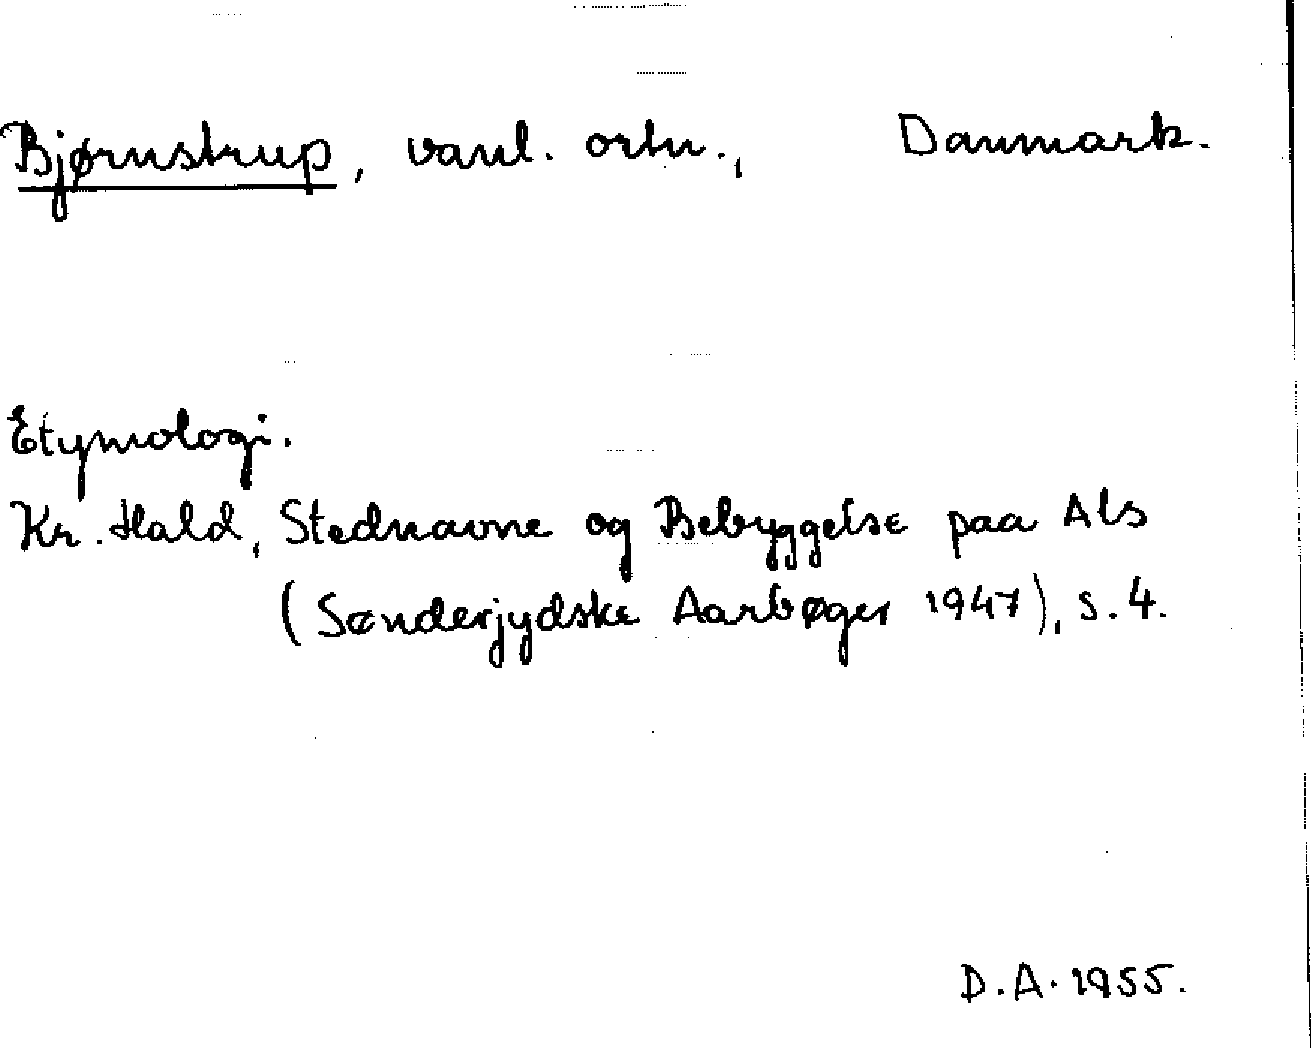 Bjørnstrup, vanl. ortn., Danmark.
Etymologi.
Kr. Hald, Stednavne og Bebyggelse paa Als
(Sønderjydske Aarbøger 1947), s. 4.
D.A. 1955.